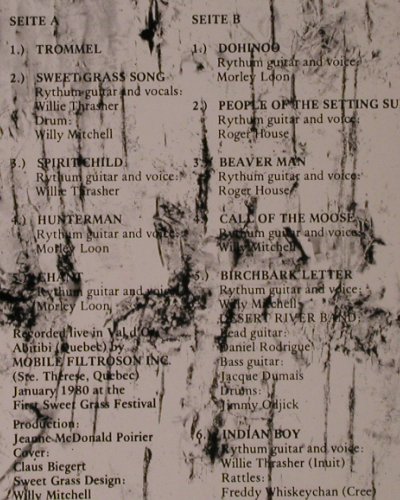 SEITE A
1.) TROMMEL
2.) SWEET GRASS SONG
Rythum guitar and vocals:
Willie Thrasher
Drum:
Willy Mitchell
3.) SPIRIT CHILD
Rythum guitar and voice:
Willie Thrasher
4.) HUNTERMAN
Rythum guitar and voice:
Morley Loon
5.) CHANT
Rythum guitar and voice:
Morley Loon
Recorded live in Val d'Or
Abitibi (Quebec) by
MOBILE FILTROSON INC.
(Ste. Thérèse, Quebec)
January 1980 at the
First Sweet Grass Festival
Production:
Jeanne McDonald Poirier
Cover:
Claus Biegert
Sweet Grass Design:
Willy Mitchell
SEITE B
1.) DOHINOO
Rythum guitar and voice:
Morley Loon
2.) PEOPLE OF THE SETTING SU
Rythum guitar and voice:
Roger House
3.) BEAVER MAN
Rythum guitar and voice:
Roger House
4.) CALL OF THE MOOSE
Rythum guitar and voice:
Willy Mitchell
5.) BIRCHBARK LETTER
Rythum guitar and voice:
Willy Mitchell
DESERT RIVER BAND:
Lead guitar:
Daniel Rodrigue
Bass guitar:
Jacque Dumais
Drums:
Jimmy Odjick
6.) INDIAN BOY
Rythum guitar and voice:
Willie Thrasher (Inuit)
Rattles:
Freddy Whiskeychan (Cree)